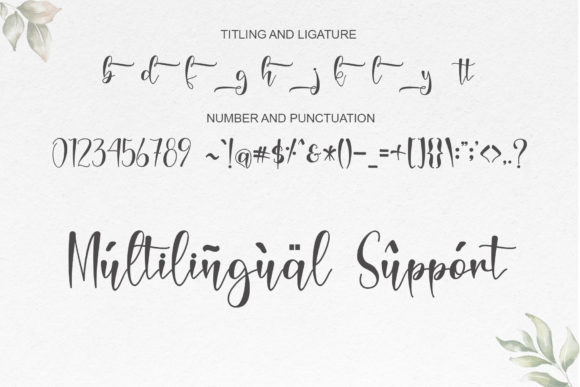 TITLING AND LIGATURE
b d f g h j k l y tt
NUMBER AND PUNCTUATION
0123456789 ~`!@#$%^&*()-_=+[]{}\:";'<>,.?
Múltiliñgùäl Sûppórt